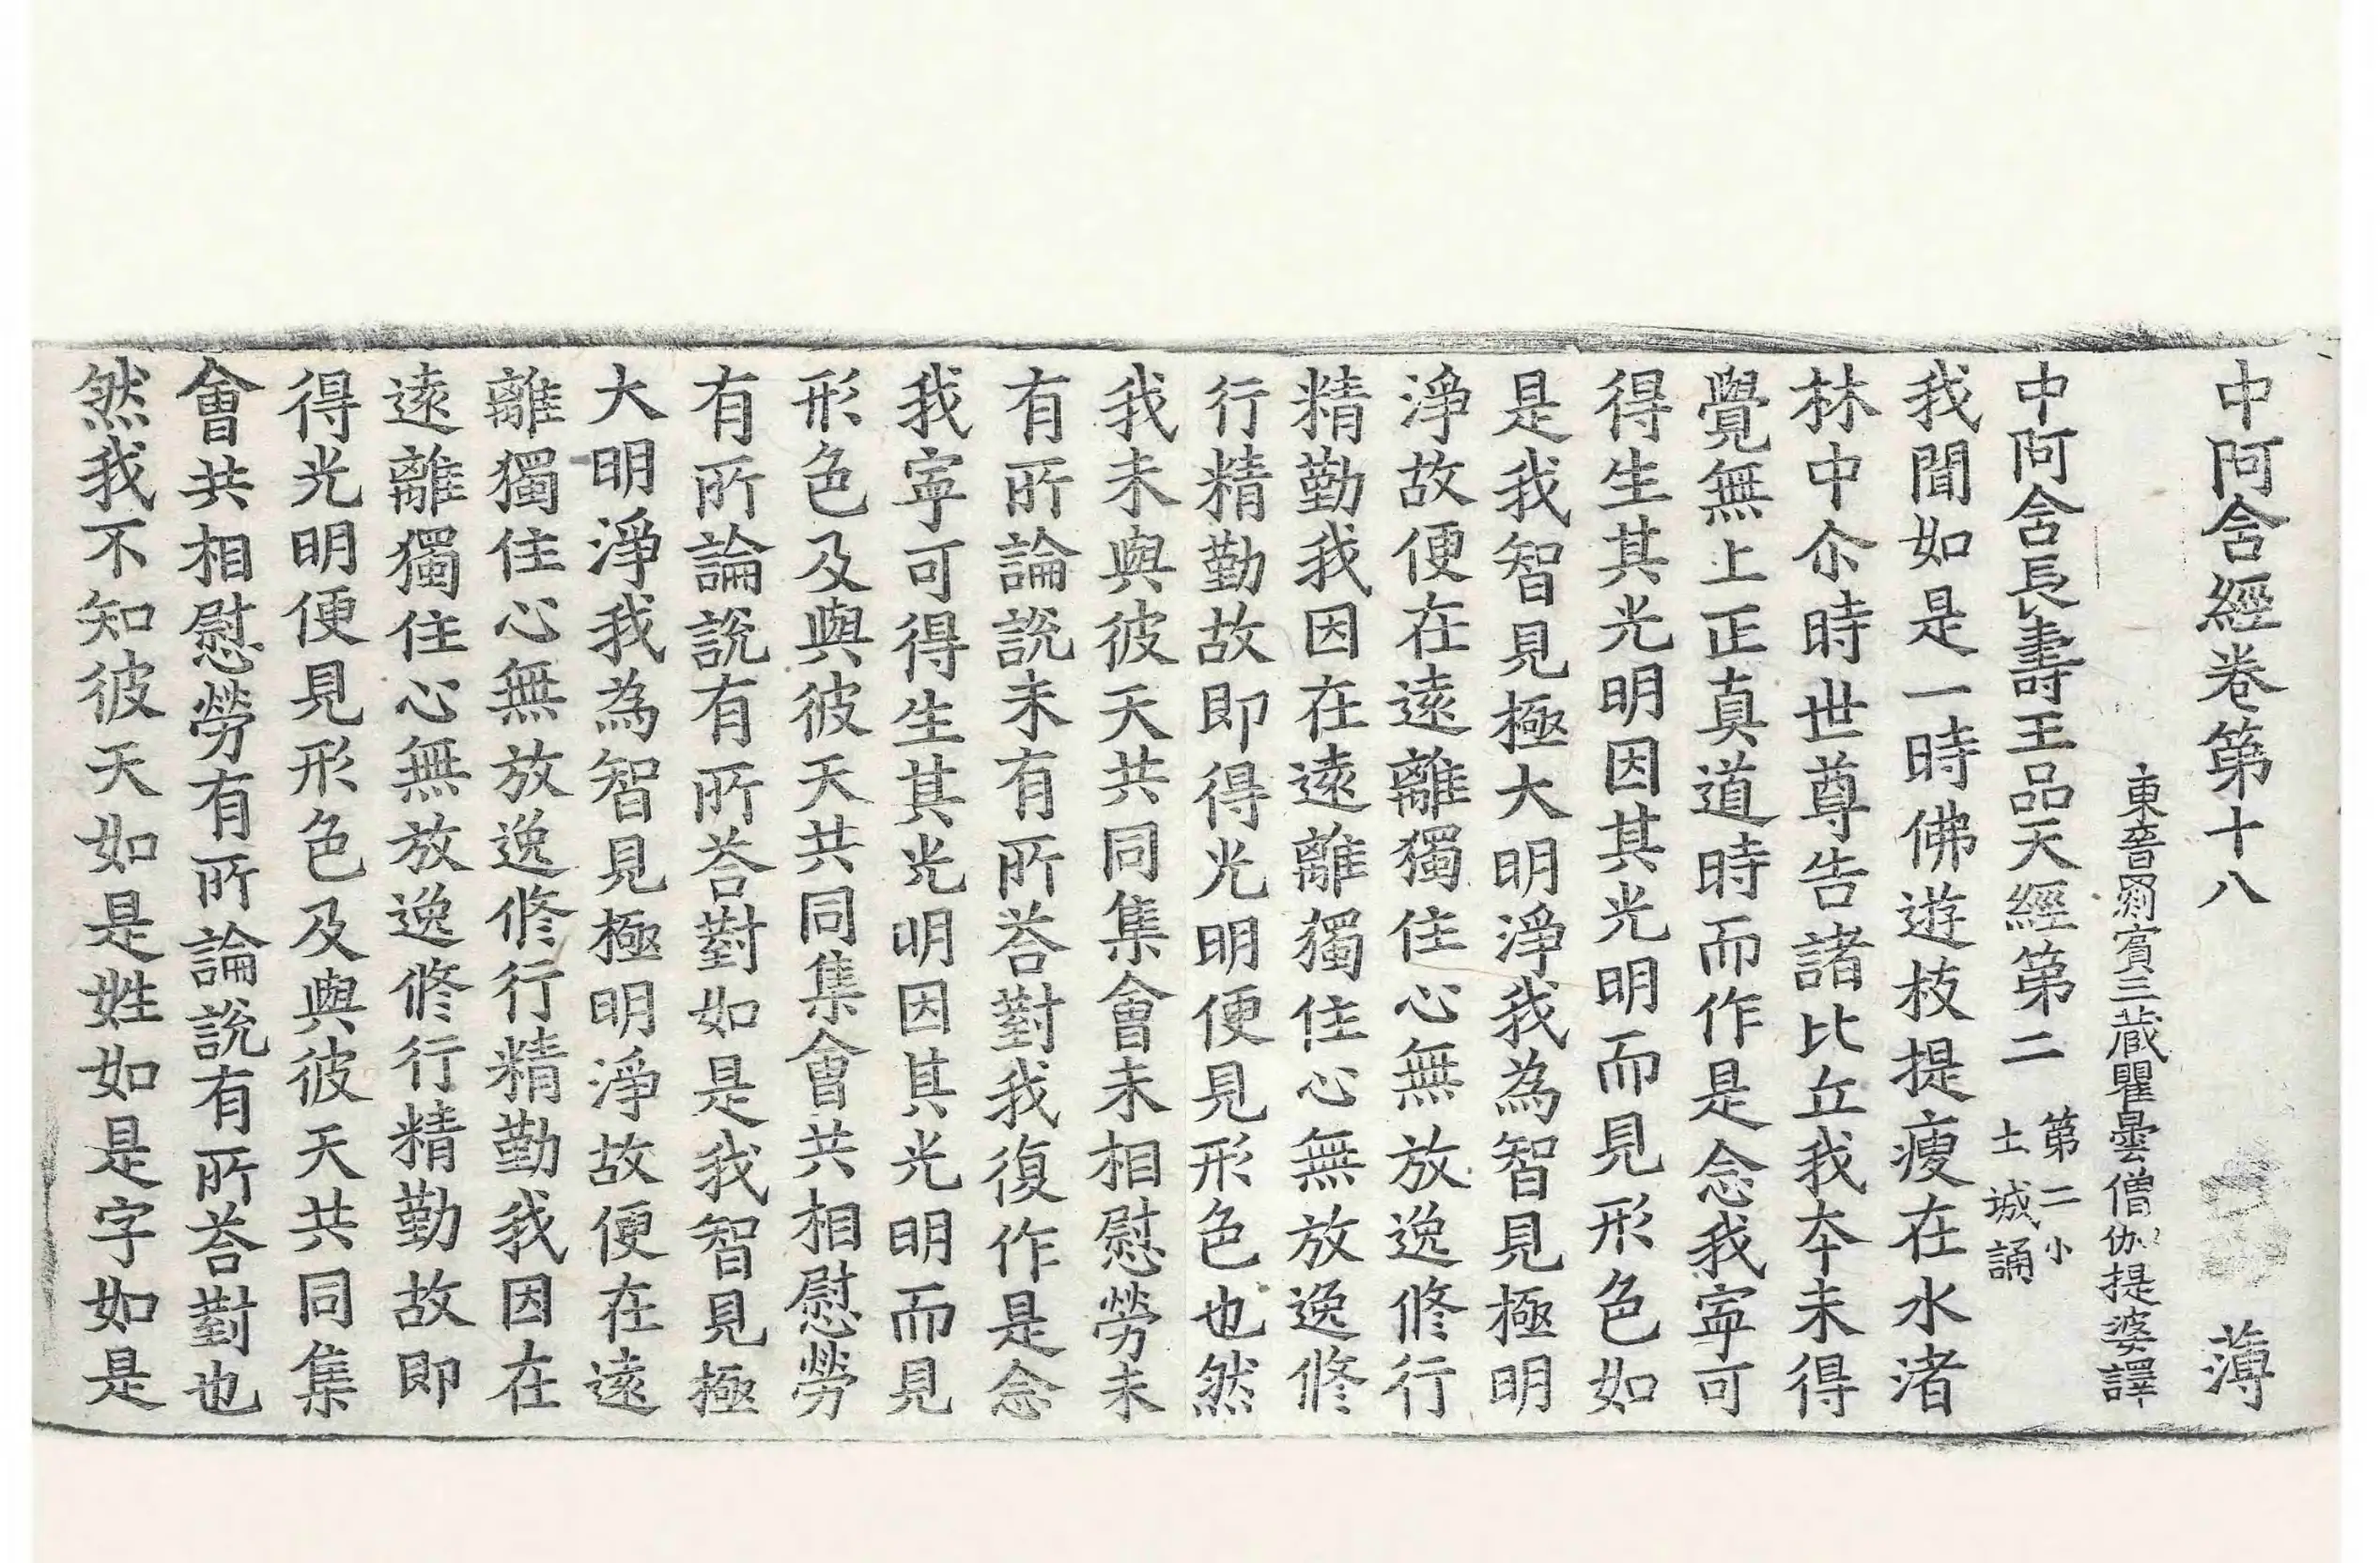 中阿含經卷第十八 薄
東晉罽賓三藏瞿曇僧伽提婆譯
中阿含長壽王品天經第二 第二小土城誦
我聞如是一時佛遊枝提瘦在水渚
林中尒時世尊告諸比丘我夲未得
覺無上正真道時而作是念我寧可
得生其光明因其光明而見形色如
是我智見極大明淨我為智見極明
淨故便在遠離獨住心無放逸修行
精勤我因在遠離獨住心無放逸修
行精勤故即得光明便見形色也然
我未與彼天共同集會未相慰勞未
有所論說未有所荅對我復作是念
我寧可得生其光明因其光明而見
形色及與彼天共同集會共相慰勞
有所論說有所荅對如是我智見極
大明淨我為智見極明淨故便在遠
離獨住心無放逸修行精勤我因在
遠離獨住心無放逸修行精勤故即
得光明便見形色及與彼天共同集
會共相慰勞有所論說有所荅對也
然我不知彼天如是姓如是字如是